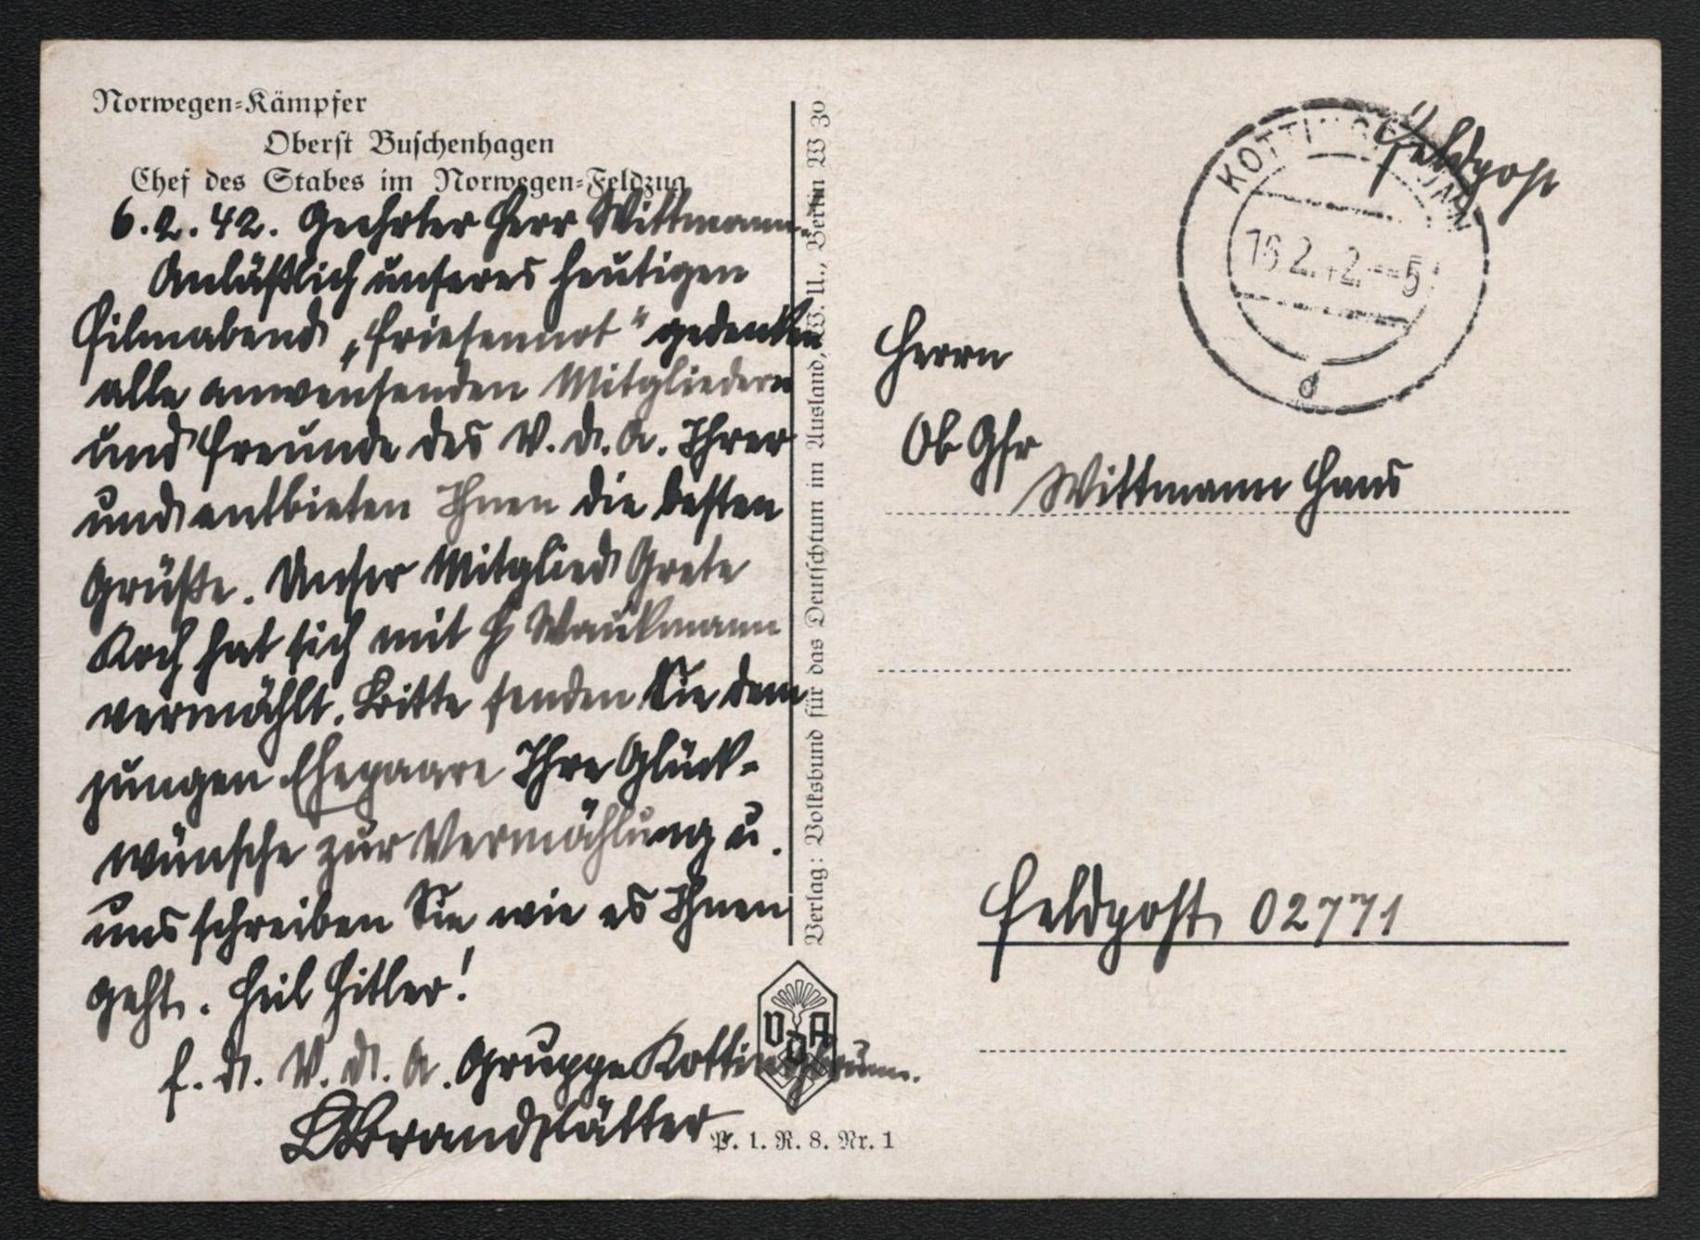 Norwegen-Kämpfer
Oberst Buschenhagen
Chef des Stabes im Norwegen-Feldzug
6. 2. 42. Geehrter Herr Wittmann.
Anläßlich unseres heutigen
Filmabend „Friesennot“ gedenken
alle anwesenden Mitgliedern
und Freunde des V. d. A. Ihrer
und entbieten Ihnen die besten
Grüße. Unser Mitglied Grete
Koch hat sich mit H Waukmann
vermählt. Bitte senden Sie dem
jungen Ehepaare Ihre Glück-
wünsche zur Vermählung u.
uns schreiben Sie wie es Ihnen
geht. Heil Hitler!
f. d. V. d. A. Gruppe Kottingbrunn.
Brandstätter
Verlag: Volksbund für das Deutschtum im Ausland, W. U., Berlin W 30
VDA
P. 1. R. 8. Nr. 1
Feldpost
KOTTINGBRUNN
16 2. 42. -- 5
d
Herrn
Ob Gfr
Wittmann Hans
Feldpost 02771